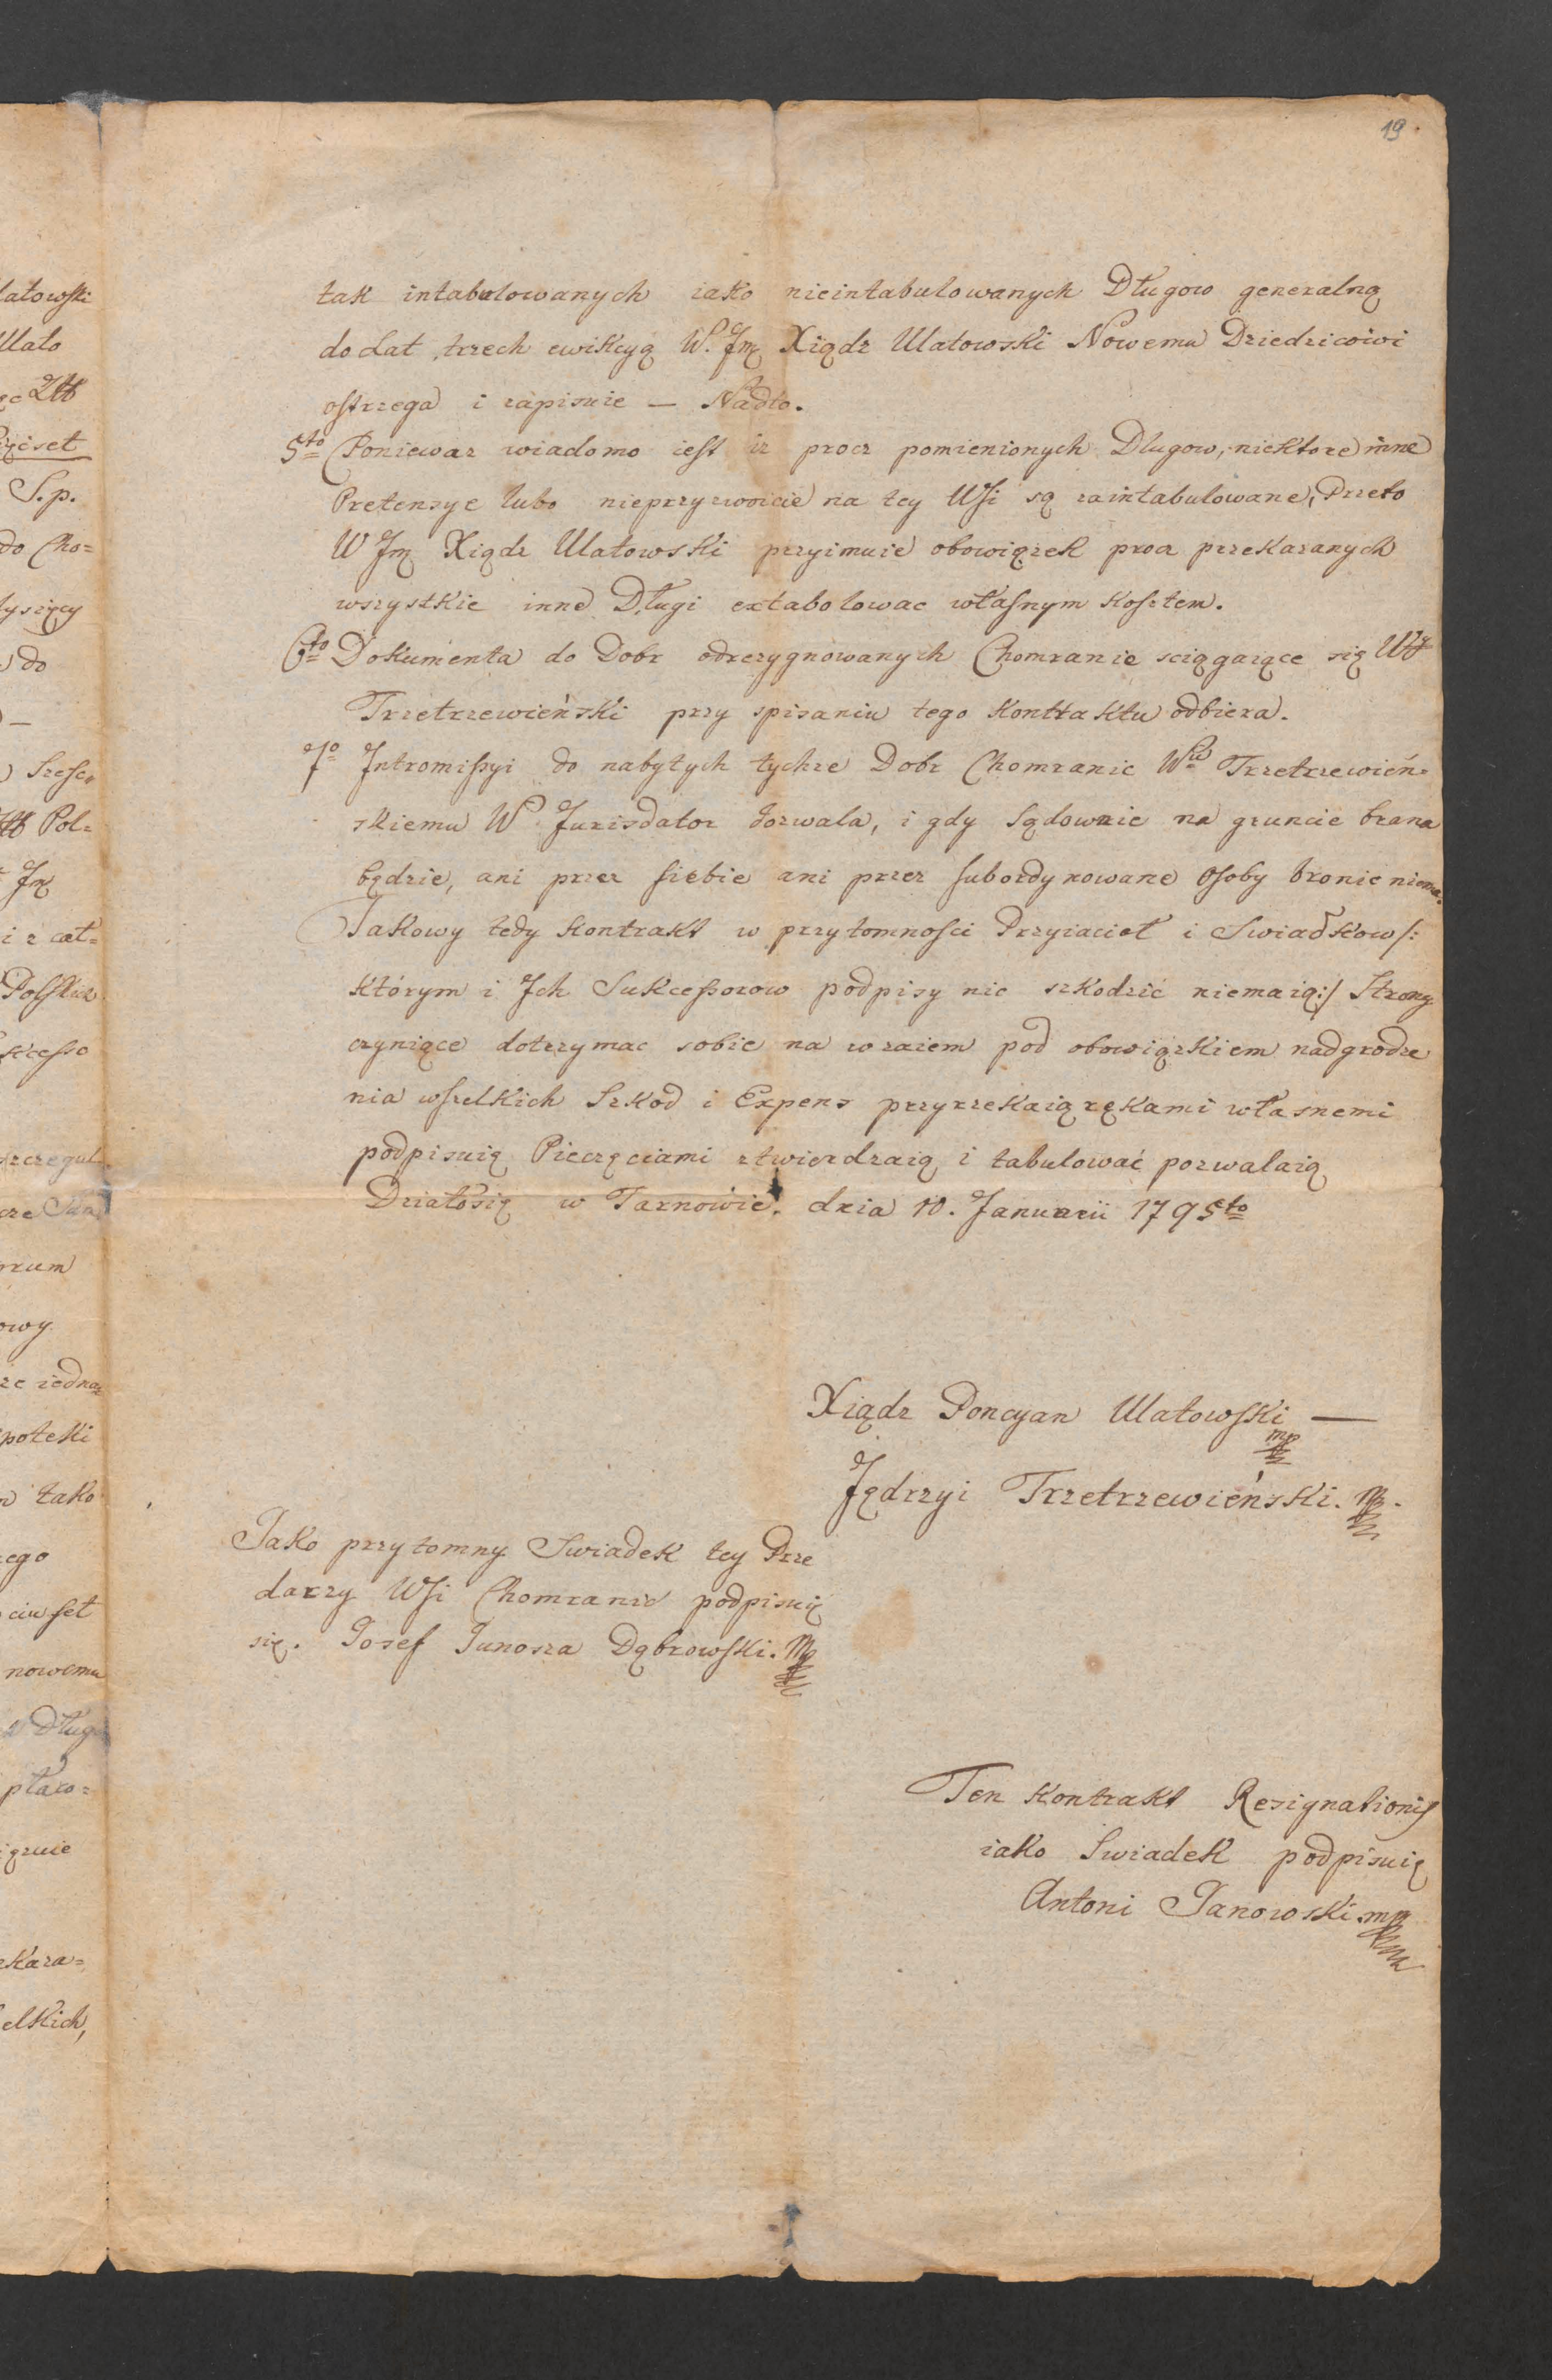 19.
tak intabulowanych iako nieintabulowanych Długow generalną
do Lat trzech ewikcyą W. Jmć Xiądz Ulatowski Nowemu Dziedzicowi
ostrzega i zapisuie — Nadto.
5to Poniewaz wiadomo iest iz procz pomienionych Dlugow, niektore inne
Pretensye lubo nieprzyzwoicie na tey Wsi są zaintabulowane, Przeto
W Jmć Xiądz Ulatowski przyimuie obowiązek procz przekazanych
wszystkie inne Długi extabolowac własnym kosztem.
6to Dokumenta do Dobr odrezygnowanych Chomranic sciągaiące się
Trzetrzewieński przy spisaniu tego kontraktu odbiera.
7o Intromissyi do nabytych tychze Dobr Chomranic Wmu Trzetrzewień=
skiemu W Jurisdator dozwala, i gdy Sądownie na gruncie brana
będzie, ani przez siebie ani przez subordynowane osoby bronic niema.
Jakowy tedy kontrakt w przytomnosci Przyiacioł i Swiadkow /:
którym i Ich Sukcessorow podpisy nic szkodzić niemaią :/ Strony
czyniące dotrzymac sobie na wzaiem pod obowiązkiem nadgrodze
nia wszelkich Szkod i Expens przyrzekaią rękami własnemi
podpisuią Pieczęciami ztwierdzaią i tabulować pozwalaią
Działosię w Tarnowie. dnia 10. Januarii 1795to
Xiądz Poncyan Ulatowski —
mp
Jędrzyi Trzetrzewieński. mp.
Jako przytomny Swiadek tey Prze
darzy Wsi Chomranic podpisuię
się. Josef Junosza Dąbrowski. Mp
Ten kontrakt Resignationis
iako Swiadek podpisuię
Antoni Janowski mp